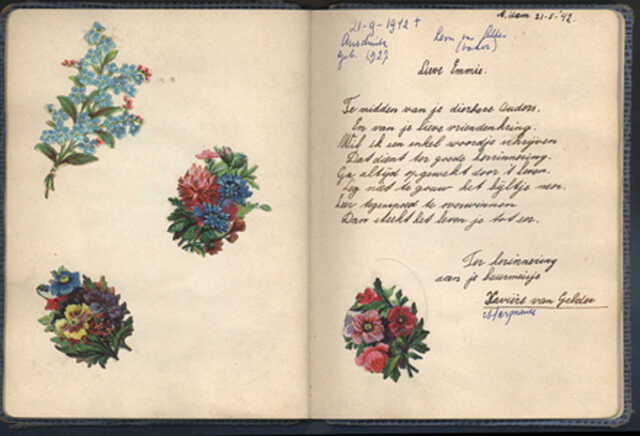 A.dam 21-5-'42.
21-9-1942 †
Auschwitz
geb. 1927
(vader)
Lieve Emmie.
Te midden van je dierbare Ouders.
En van je lieve vriendenkring.
Wil ik een enkel woordje schrijven
Dat dient ter goede herinnering.
Ga altijd opgewekt door 't leven.
Leg niet te gauw het bijltje neer.
Leer tegenspoed te overwinnen
Dan strekt het leven je tot eer.
Ter herinnering
aan je buurmeisje
Xaviére van Gelder